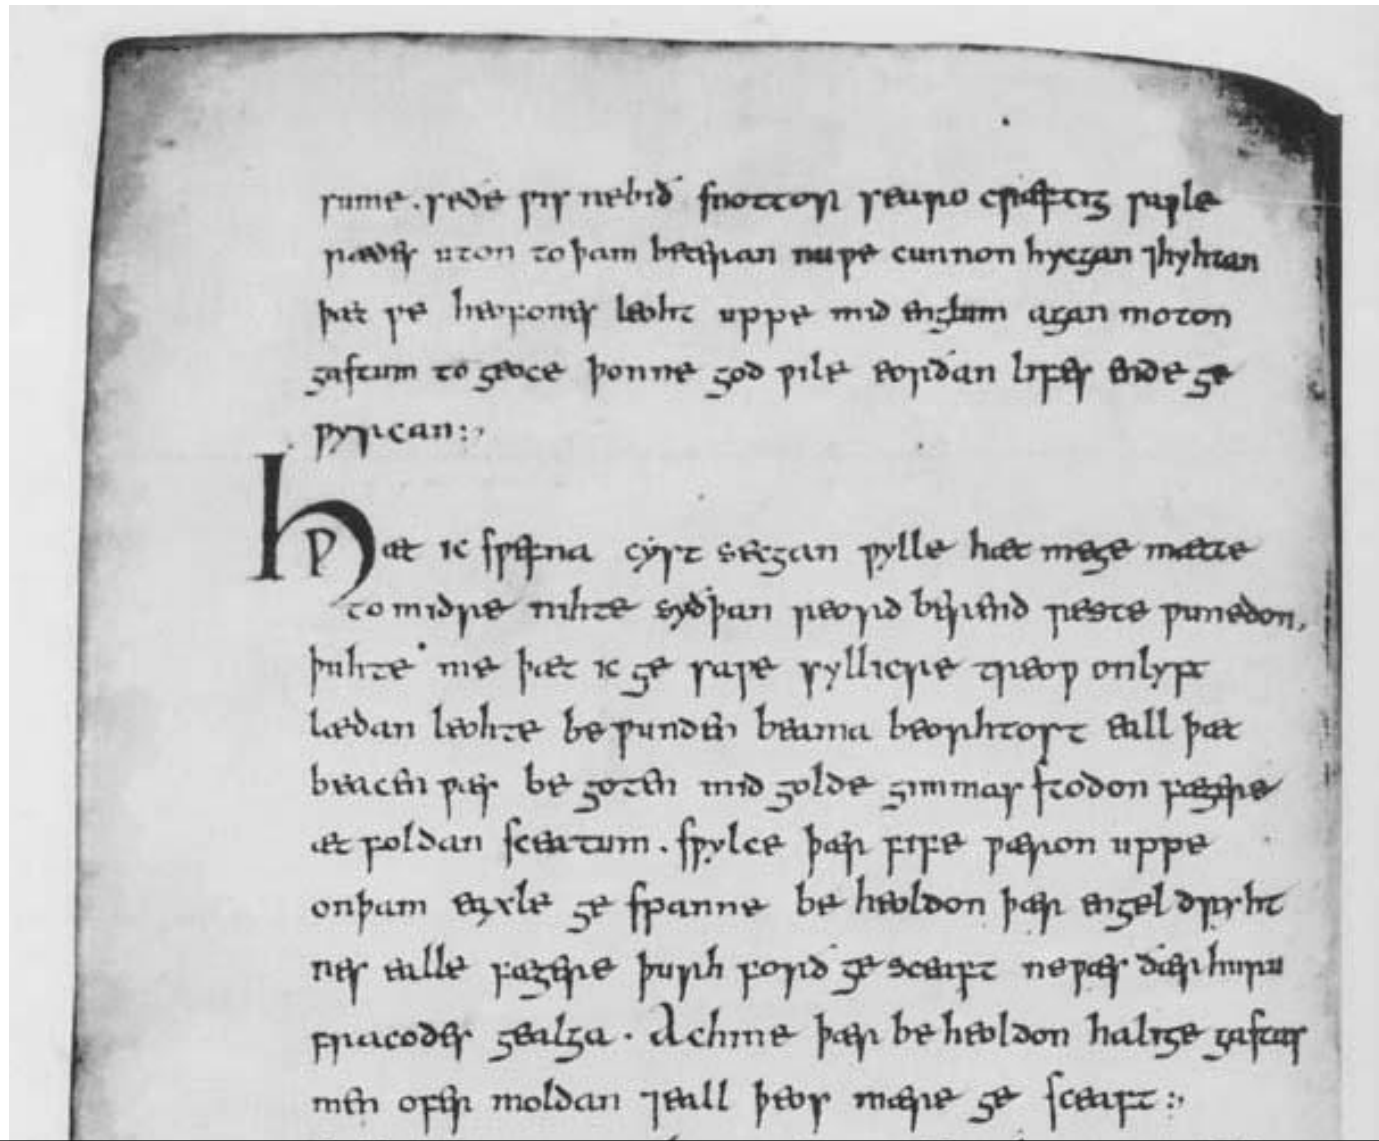 sume . seðe ƿis nebið snottor searo cræftig saƿle
rædes uton to þam beteran nuƿe cunnon hycgan ⁊hyhtan
þæt ƿe heofones leoht uppe mid englum agan moton
gastum to geoce þonne god ƿile eorðan lifes ende ge
ƿyrcan:,
Hƿæt ic sƿefna cyst secgan ƿylle hæt mege mætte
to midre nihte syðþan reord berend reste ƿunedon,
þuhte me þæt ic ge saƿe syllicre treoƿ onlyft
lædan leohte be ƿunden beama beorhtost eall þæt
beacen ƿæs be goten mid golde gimmas stodon fægere
æt foldan sceatum . sƿylce þær fife ƿæron uppe
onþam eaxle ge spanne be heoldon þær engel dryht
nes ealle fægere þurh forð ge sceaft neƿæs ðær huru
fracodes gealga . Achine þær be heoldon halige gastas
men ofer moldan ⁊eall þeos mære ge sceaft :,